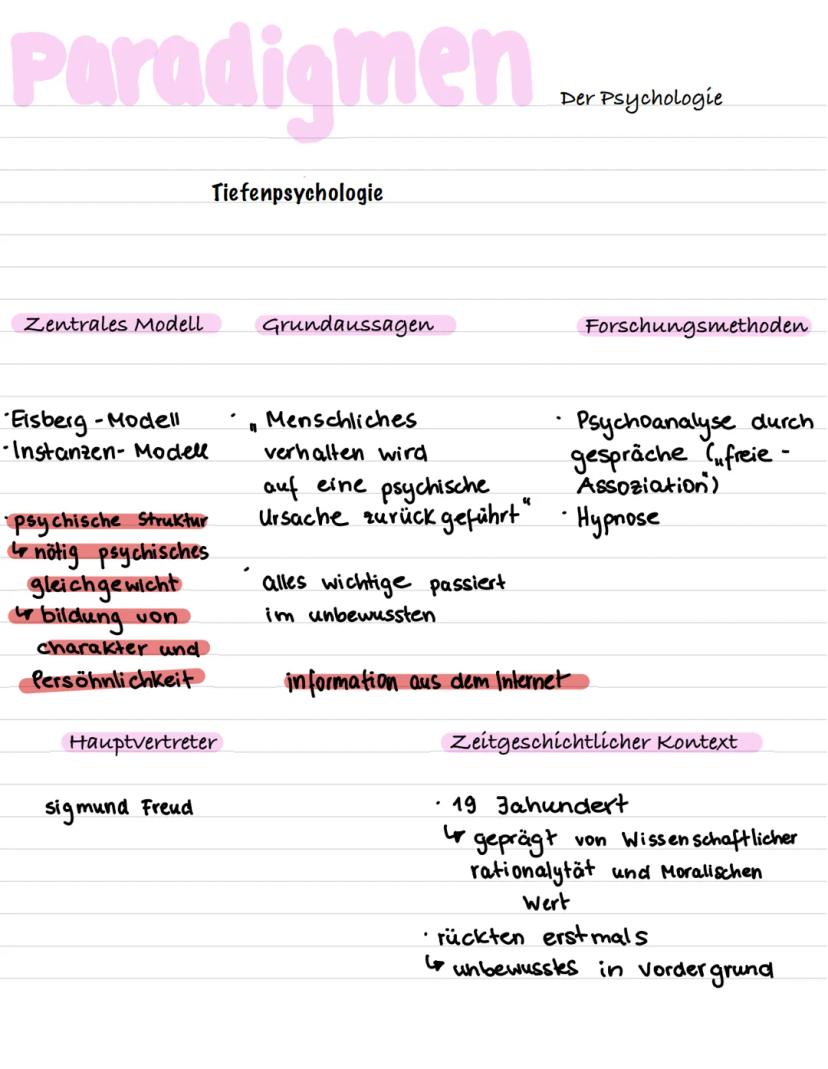 Paradigmen
Der Psychologie
Tiefenpsychologie
Zentrales Modell
·Eisberg-Modell
·Instanzen-Modell
·psychische Struktur
↳ nötig psychisches
gleichgewicht
↳ bildung von
charakter und
Persöhnlichkeit
Grundaussagen
· „Menschliches
verhalten wird
auf eine psychische
Ursache zurückgeführt"
· alles wichtige passiert
im unbewussten
information aus dem Internet
Forschungsmethoden
· Psychoanalyse durch
gespräche („freie-
Assoziation")
· Hypnose
Hauptvertreter
sigmund Freud
Zeitgeschichtlicher Kontext
· 19 Jahundert
↳ geprägt von Wissenschaftlicher
rationalytät und Moralischen
Wert
· rückten erstmals
↳ unbewusstes in Vordergrund